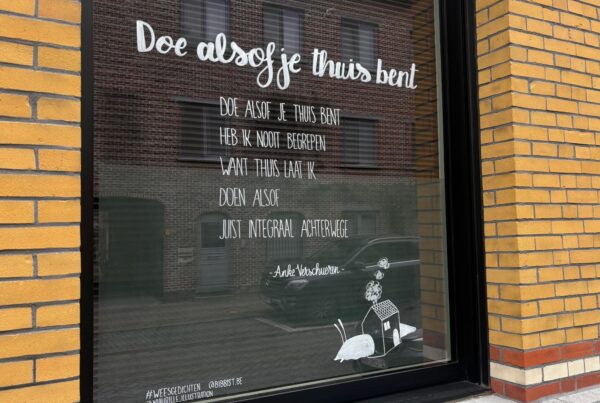 Doe alsof je thuis bent
DOE ALSOF JE THUIS BENT
HEB IK NOOIT BEGREPEN
WANT THUIS LAAT IK
DOEN ALSOF
JUIST INTEGRAAL ACHTERWEGE
- Anke Verschueren -
#WEESGEDICHTEN @BIBBRST.BE